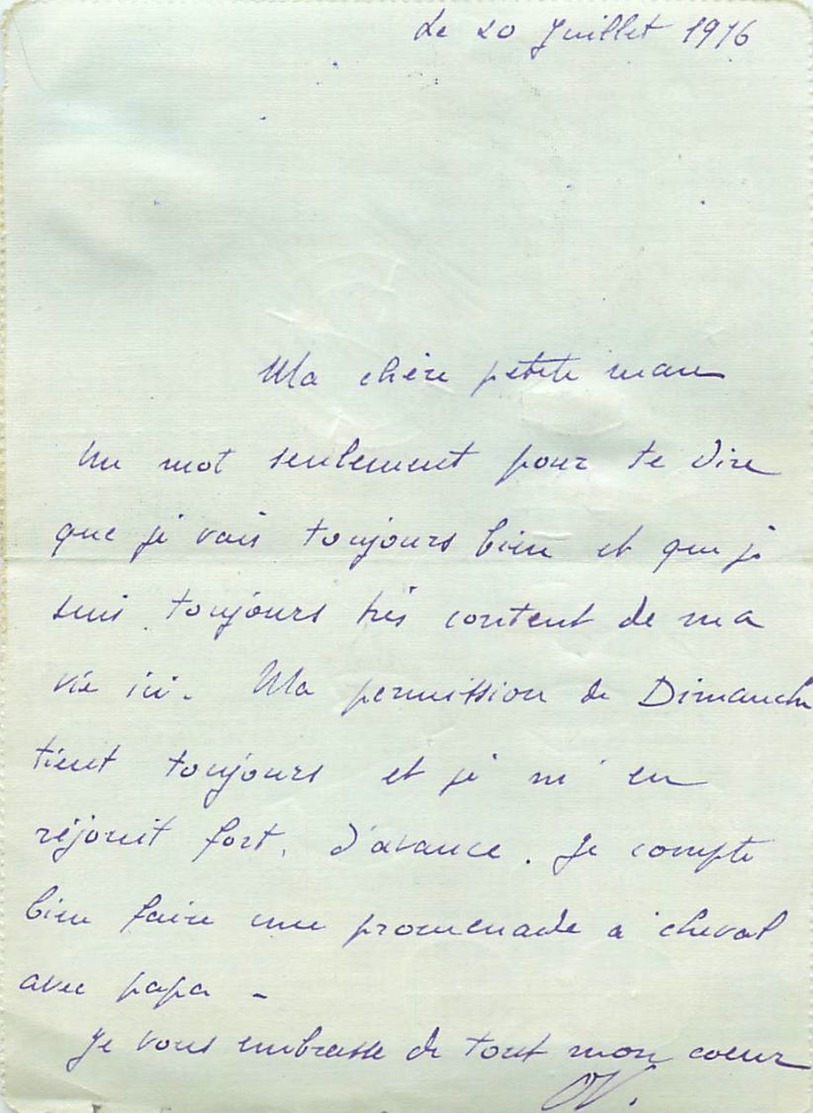 Le 20 Juillet 1916
Ma chère petite mam
Un mot seulement pour te dire
que je vais toujours bien et que je
suis toujours très content de ma
vie ici. Ma permission de Dimanche
tient toujours et je m'en
réjouit fort, d'avance. Je compte
bien faire une promenade a cheval
avec papa -
Je vous embrasse de tout mon coeur
OV.